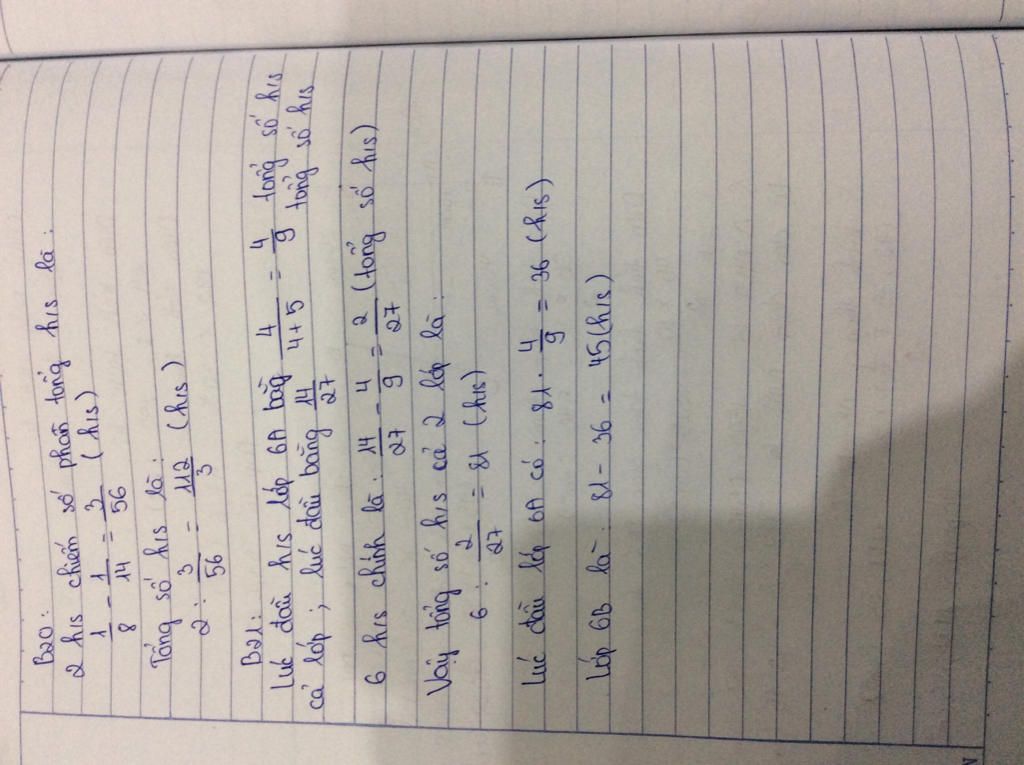 B20:
2 his chiếm số phần tổng his là:
1/8 - 1/14 = 3/56 (his)
Tổng số his là:
2 : 3/56 = 112/3 (his)
B21:
Lúc đầu his lớp 6A bằg 4/4+5 = 4/9 tổng số his
cả lớp ; lúc đầu bằng 14/27 tổng số his
6 his chính là : 14/27 - 4/9 = 2/27 (tổng số his)
Vậy tổng số his cả 2 lớp là:
6 : 2/27 = 81 (his)
Lúc đầu lớp 6A có : 81 . 4/9 = 36 (his)
Lớp 6B là : 81 - 36 = 45 (his)